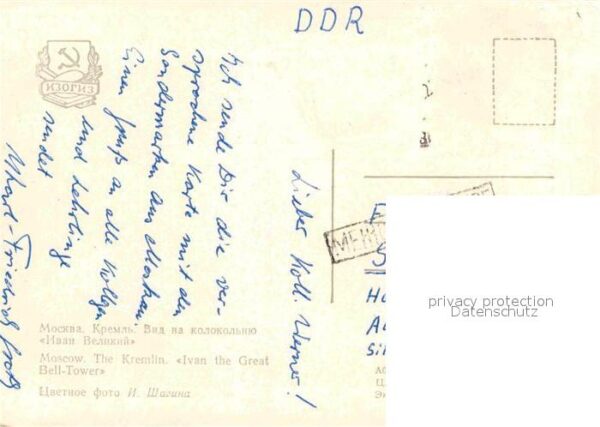 DDR
ИЗОГИЗ
Lieber Koll. Werner!
Ich sende Dir die ver-
sprochene Karte mit den
Sondermarken aus Moskau.
Einen Gruß an alle Kollegen
und Lehrlinge
sendet
Karl-Friedrich
Москва. Кремль. Вид на колокольню
«Иван Великий»
Moscow. The Kremlin. «Ivan the Great
Bell-Tower»
Цветное фото И. Шагина
privacy protection
Datenschutz